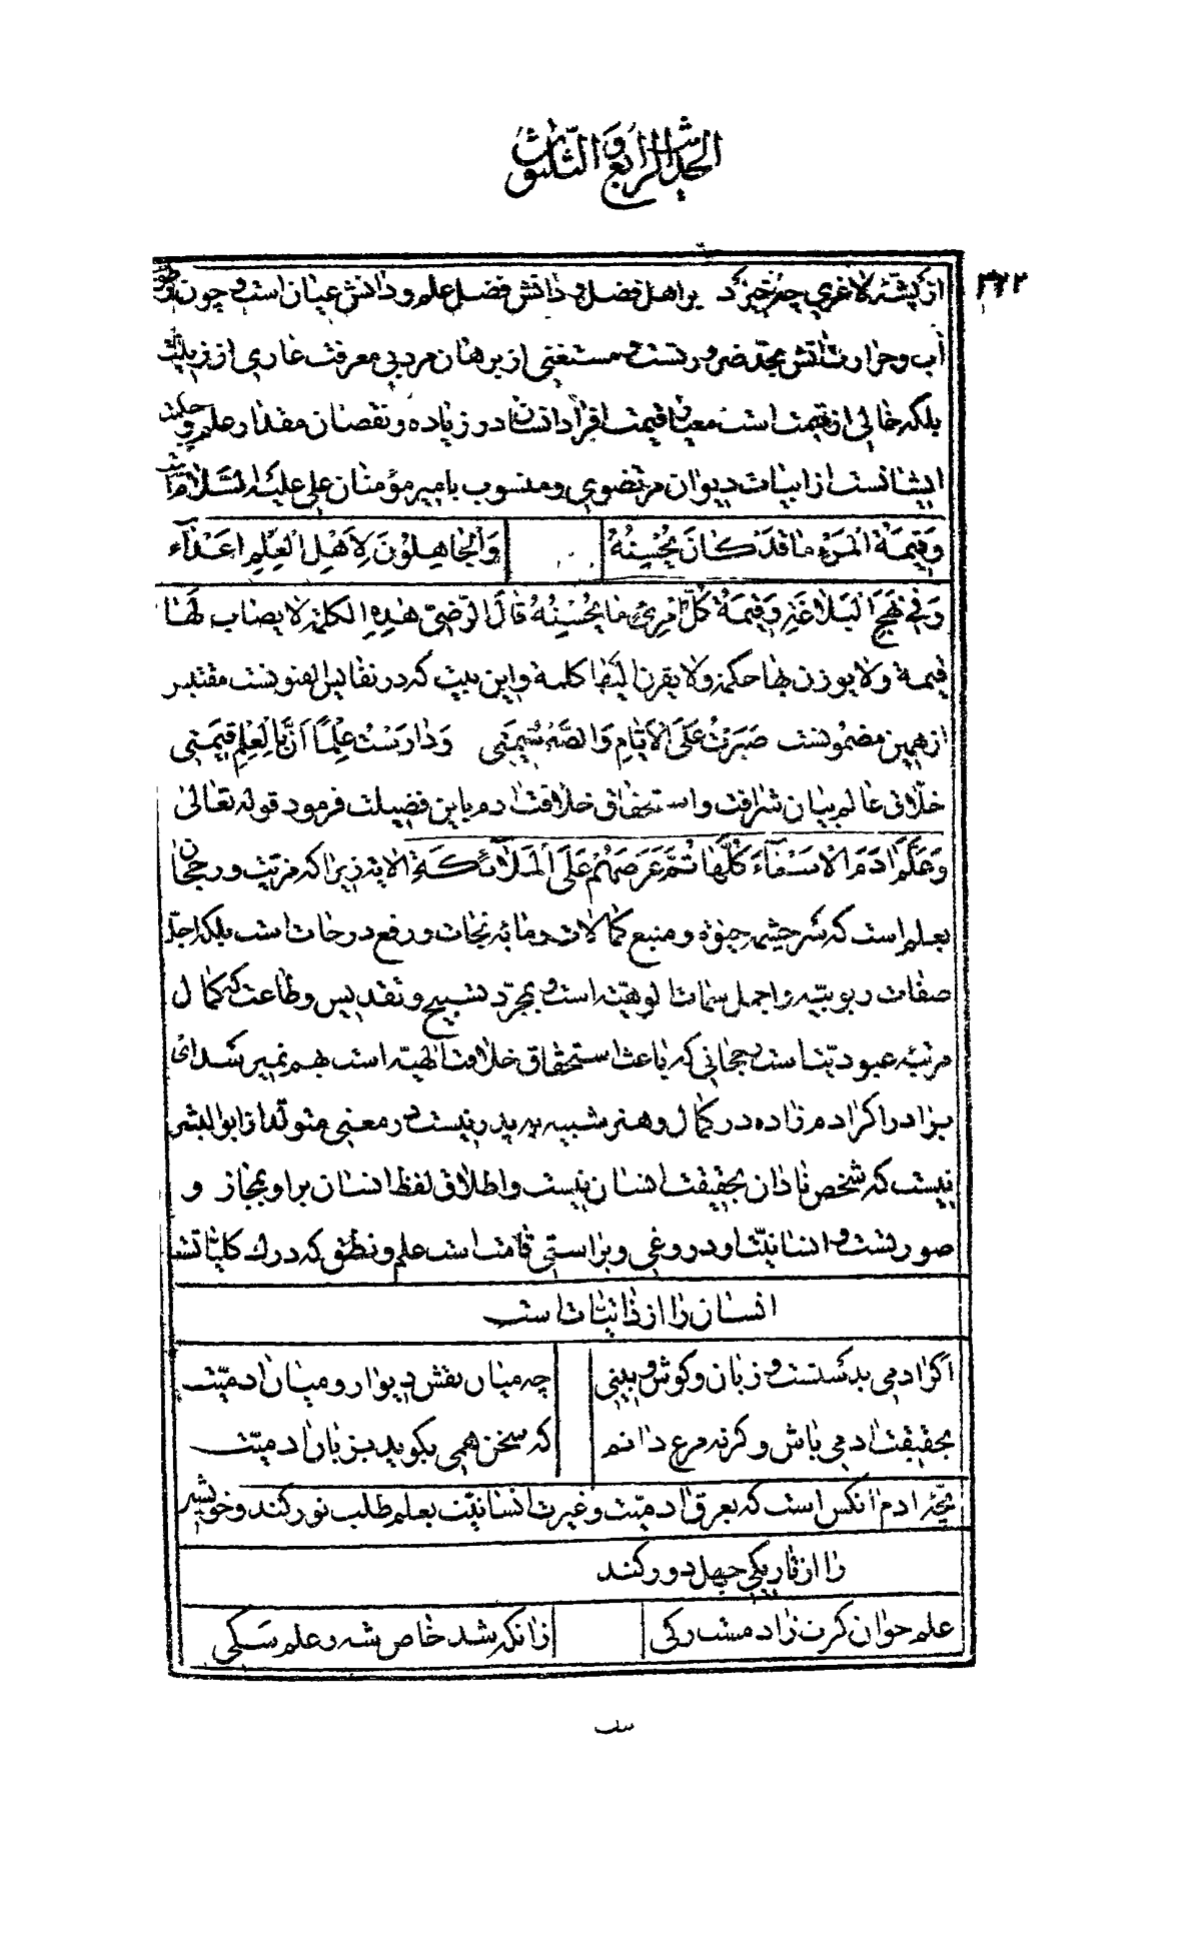 الحديث الرابع و الثلثون
۳۲۲
از پشهٔ لاغری چه خیزد بر اهل فضل و دانش فضل علم و دانش عیان است و چون
آب و حرارت آتش بحد ضرورتست و مستغنی از برهان مرد بی معرفت عاری از زینت
بلکه خالی از قیمت است معیار قیمت افراد انسان در زیاده و نقصان مقدار علم و حکمت
ایشانست از ابیات دیوان مرتضوی و منسوب بامیر مؤمنان علی علیه السلام است
وَقِيمَةُ الْمَرْءِ مَا قَدْ كَانَ يُحْسِنُهُ وَالْجَاهِلُونَ لِأَهْلِ الْعِلْمِ أَعْدَآء
وَفي نَهجِ الْبَلَاغَةِ وَقِيمَةُ كُلِّ امْرِئٍ مَا يُحْسِنُهُ قالَ الرَّضِيّ هذِهِ الكلمة لا يصاب لها
قيمة ولا يوزن بها حكمة ولا يقرن اليها كلمة و این بیت که در نفایس الفنونست مقتبس
از همین مضمونست صَبَرْتُ عَلَى الْأَيَّامِ وَالصَّبْرُ شِيمَتي وَدَارَسْتُ عِلْماً أَنَّ بِالْعِلْمِ قِيمَتي
خلاق عالم بیان شرافت و استحقاق خلافت آدم باین فضیلت فرمود قوله تعالی
وَعَلَّمَ آدَمَ الْأَسْمَآءَ كُلَّهَا ثُمَّ عَرَضَهُمْ عَلَى الْمَلَآئِكَةِ الایة زیرا که مزیت و رجحان
بعلم است که سرچشمه حیوة و منبع کمالات و مایهٔ نجات و رفع درجات است بلکه اجل
صفات ربوبیه و اجمل سمات الوهیته است و بمجرد تسبیح و تقدیس و طاعت که کمال
مرتبهٔ عبودیتست رجحانی که باعث استحقاق خلافت الهیه است بهم نمیرسد ای
برادر اگر آدم زاده در کمال و هنر شبیه به پدر نیست در معنی متولد از ابو البشر
نیست که شخص نادان بحقیقت انسان نیست و اطلاق لفظ انسان بر او بمجاز و
صورتست و انسانیت او دروغی و براستی قامت است علم و نطق که درك کلیاتست
انسان را از ذاتیات است
اگر آدمی بدستست و زبان و گوش و بینی چه میان نقش دیوار و میان آدمیت
بحقیقت آدمی باش و گرنه مرغ دانم که سخن همی بگوید بزبان آدمیت
آدم آنکس است که بعرق آدمیت و غیرت انسانیت بعلم طلب نور کند و خویش
را از تاریکی جهل دور کند
علم خوان زانکه شد خاص شه و علم سگی